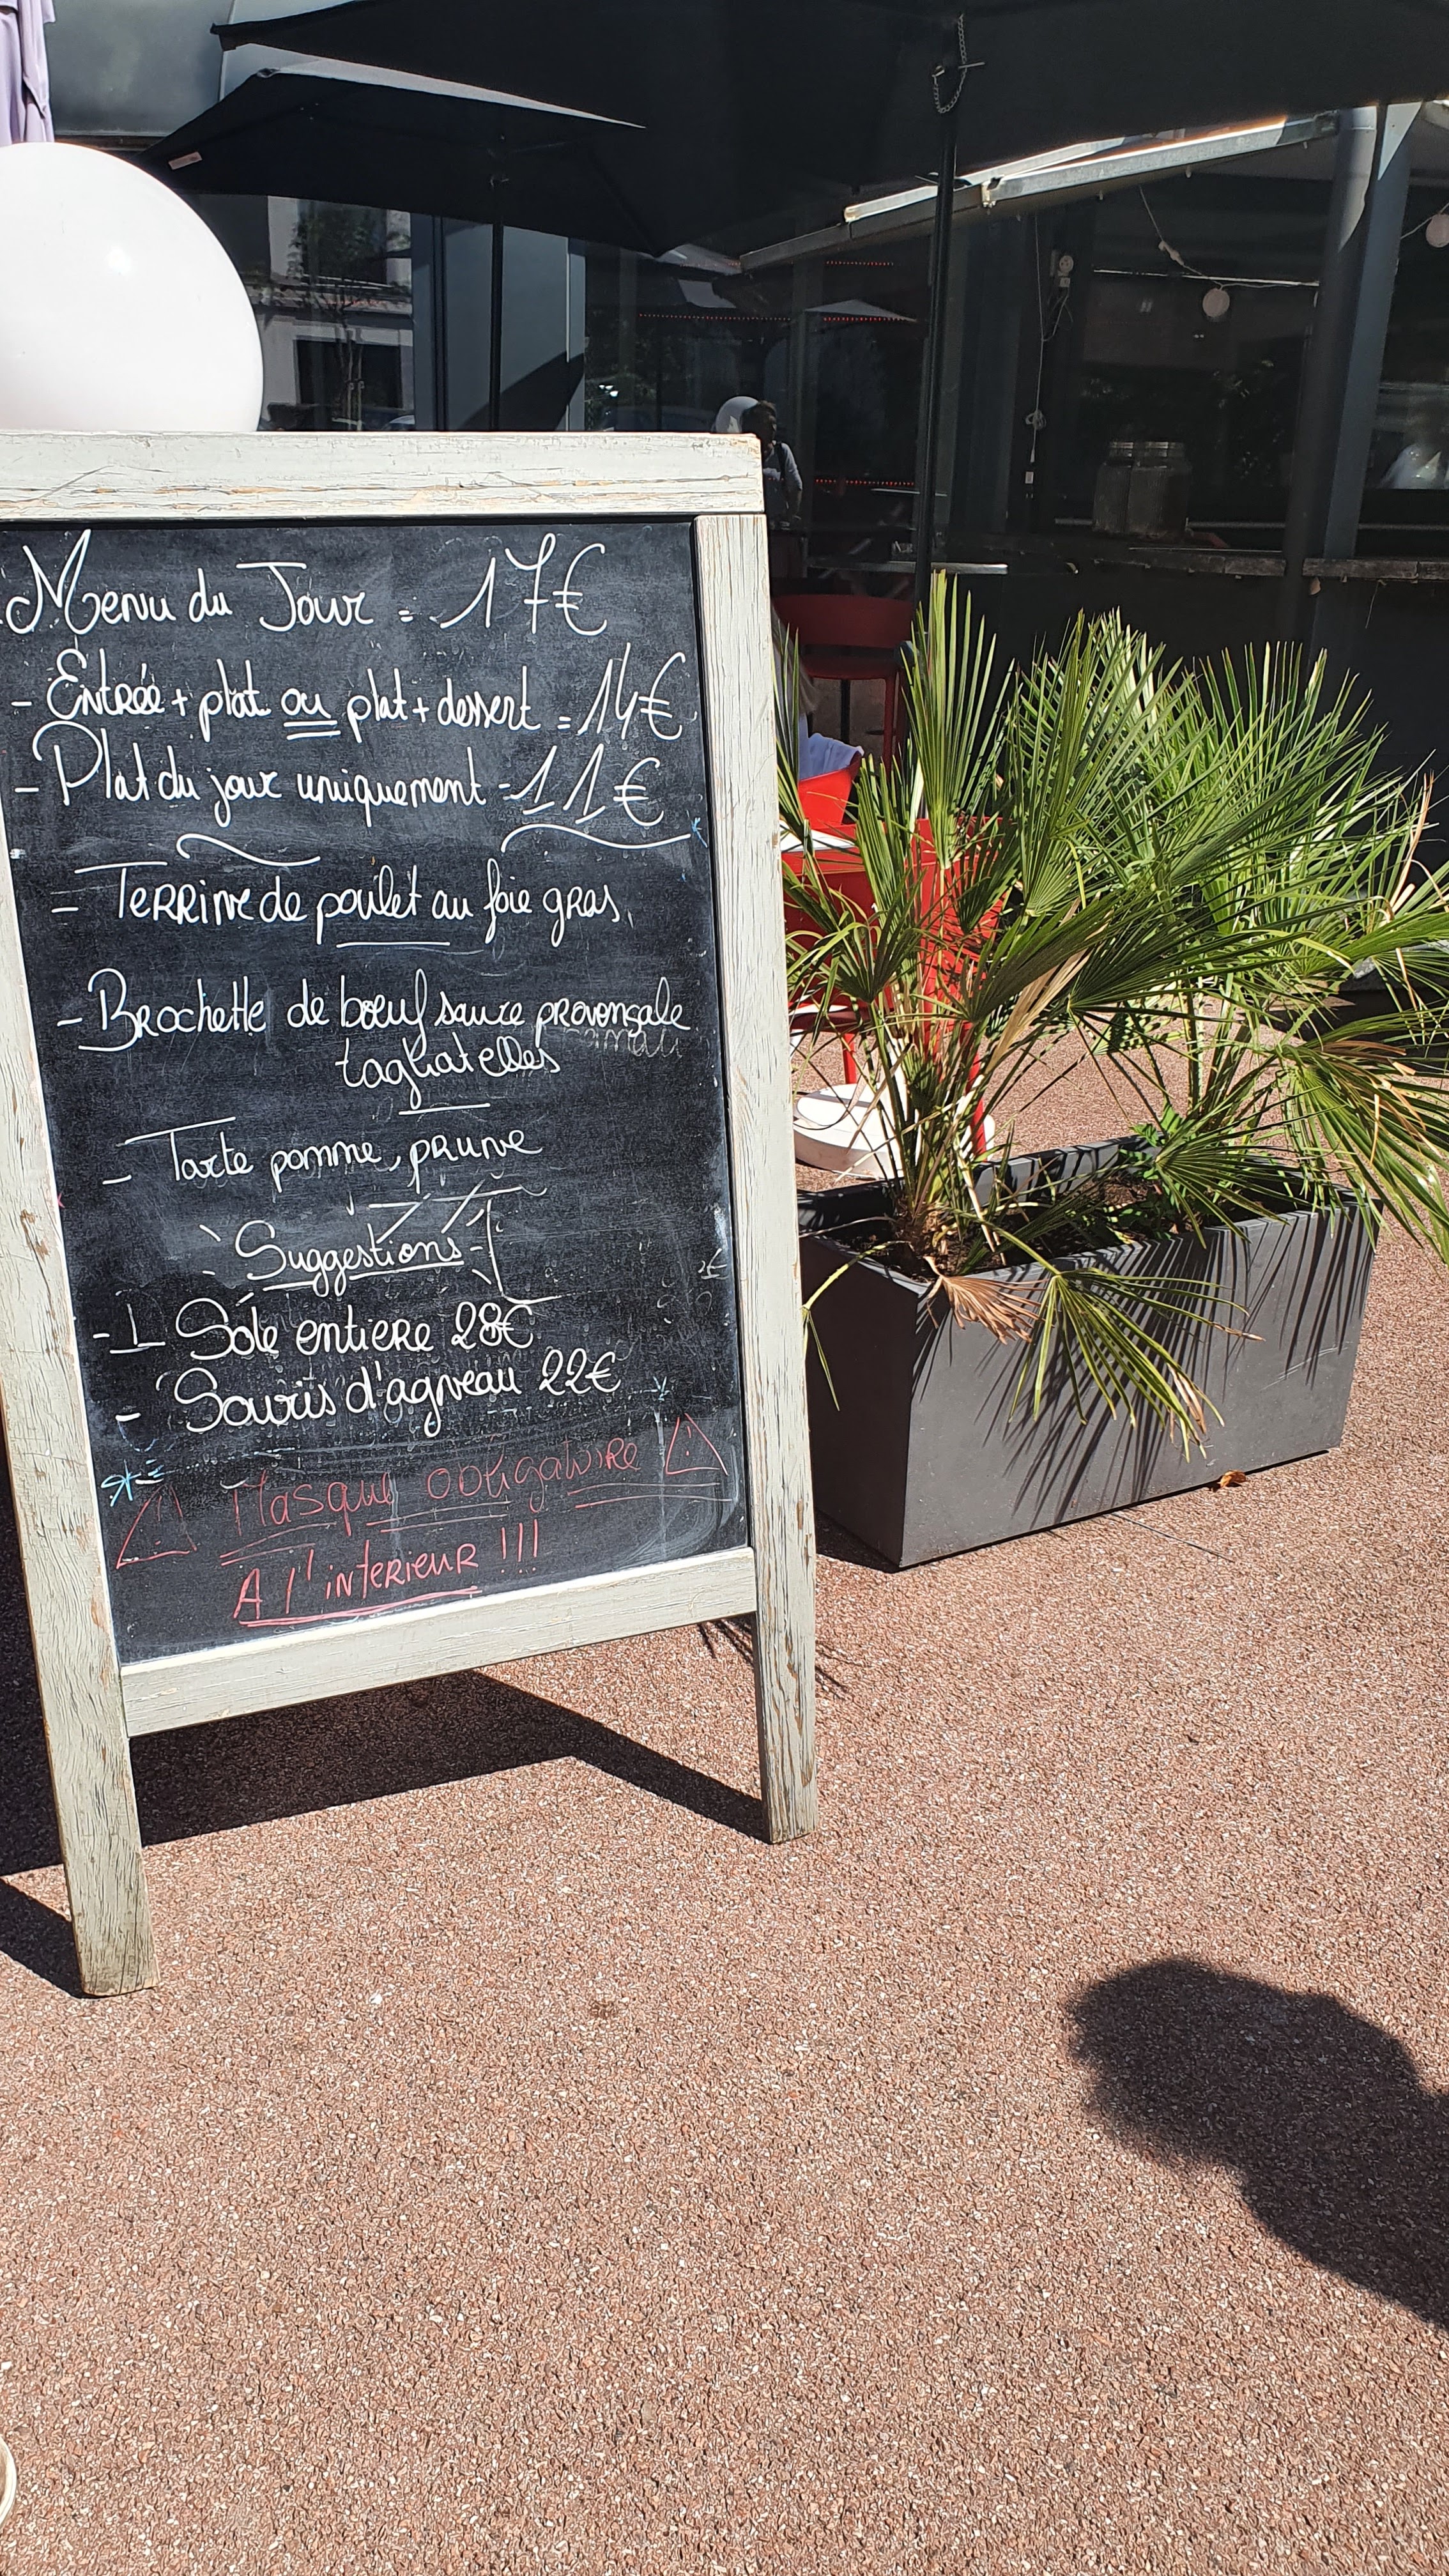 Menu du Jour = 17€
- Entrée + plat ou plat + dessert = 14€
- Plat du jour uniquement = 11€
- Terrine de poulet au foie gras.
- Brochette de bœuf sauce provençale
tagliatelles
- Tarte pomme, prune
Suggestions
- Sole entiere 28€
- Souris d'agneau 22€
Masque obligatoire
A l'interieur !!!